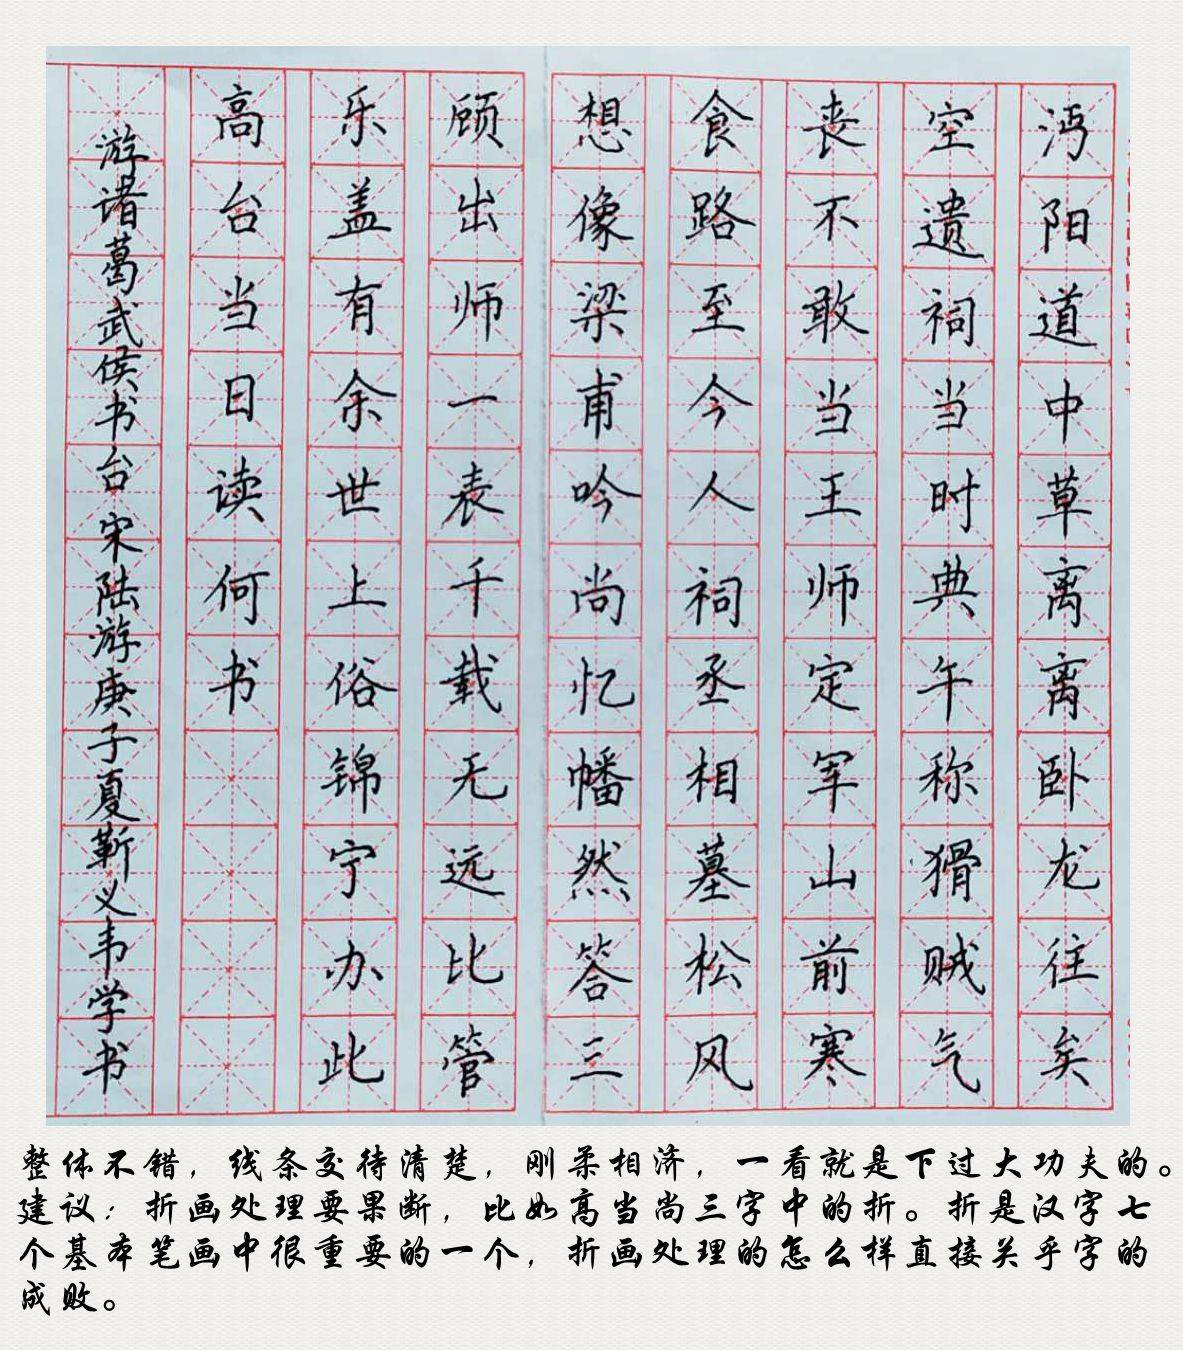 沔阳道中草离离卧龙往矣
空遗祠当时典午称猾贼气
丧不敢当王师定军山前寒
食路至今人祠丞相墓松风
想像梁甫吟尚忆幡然答三
顾出师一表千载无远比管
乐盖有余世上俗锦宁办此
高台当日读何书
游诸葛武侯书台宋陆游庚子夏靳义韦学书
整体不错，线条交待清楚，刚柔相济，一看就是下过大功夫的。
建议：折画处理要果断，比如高当尚三字中的折。折是汉字七
个基本笔画中很重要的一个，折画处理的怎么样直接关乎字的
成败。